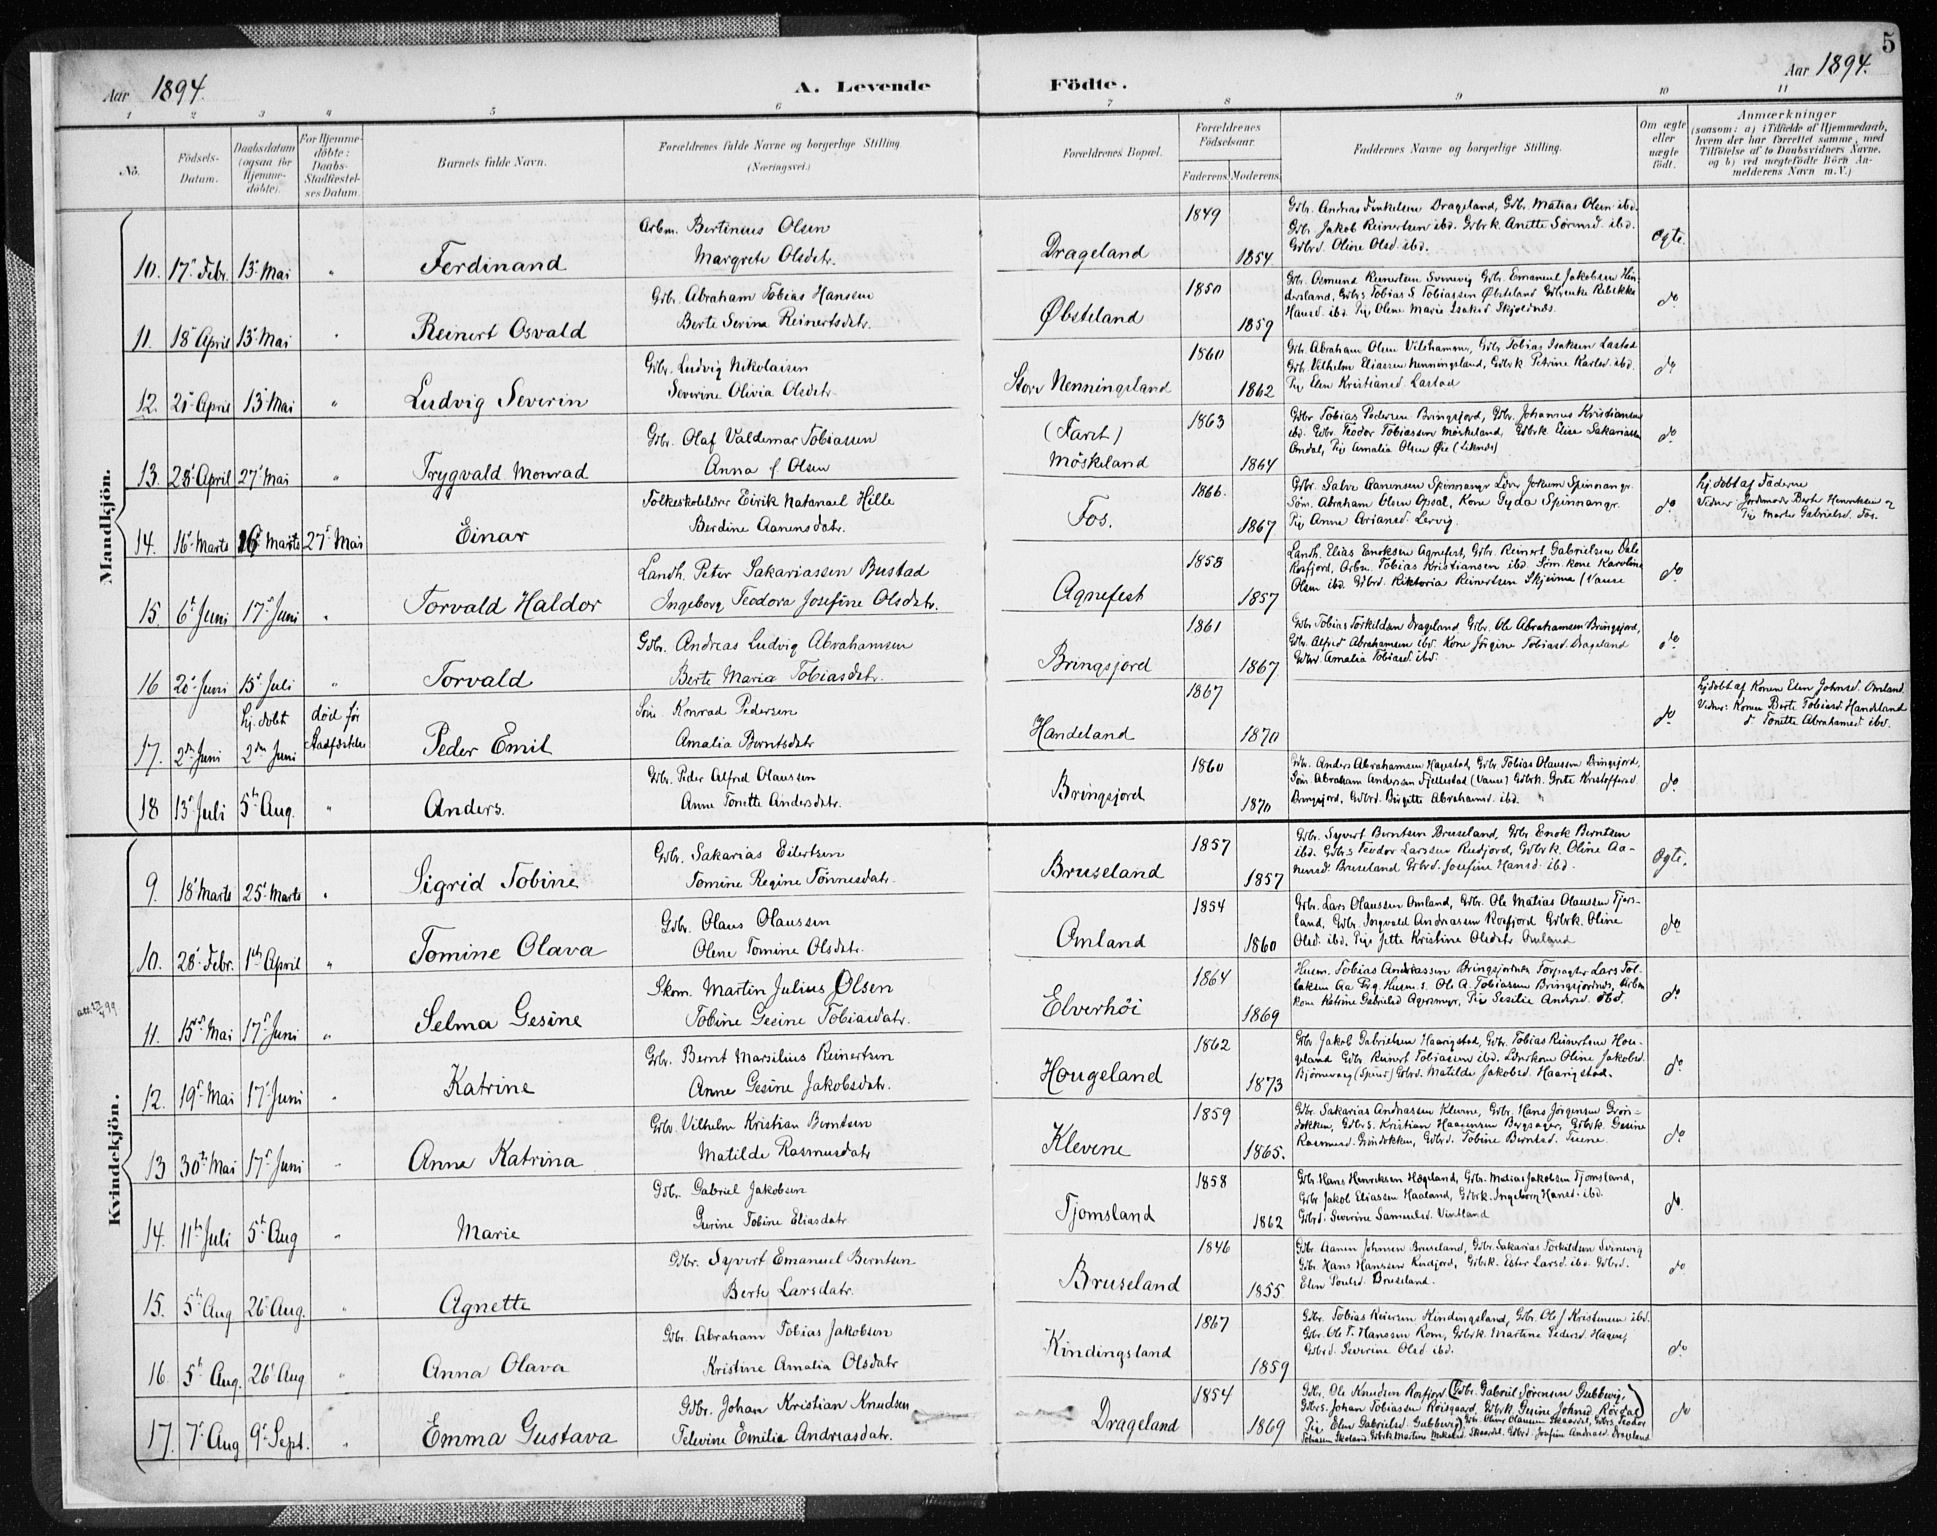 5
Aar 1894. A. Levende Födte. Aar 1894.
1 2 3 4 5 6 7 8 9 10 11
No. Födsels-Datum. Daabsdatum (ogsaa for Hjemme-döbte). For Hjemme-döbte: Daabs-Stadfæstel-ses Datum. Barnets fulde Navn. Forældrenes fulde Navne og borgerlige Stilling (Næringsvei.) Forældrenes Bopæl. Forældrenes Födselsaar. Faderens. Moderens. Faddernes Navne og borgerlige Stilling. Om ægte eller uægte födt. Anmærkninger (saasom: a) i Tilfælde af Hjemmedaab, hvem der har forrettet samme, med Tilföielse af to Daabsvidners Navne, og b) ved uægtefödte Börn An-melderens Navn m.V.)
Mandkjön.
10. 17' Febr. 13' Mai " Ferdinand Arbm. Bertinius Olsen Margrete Olsdatr. Drageland 1849 1854 Gbr. Andreas Drageland, Gbr. Matias Olsen ibd.
Gbr. Jakob Reinertsen ibd. Gbrk. Anette ibd.
Gbrd. Oline Olsd. ibd. Ægte.
11. 18' April 13' Mai " Reinert Osvald Gbr. Abraham Tobias Hansen Berte Serina Reinertsdatr. Øbsteland 1850 1859 Gbr. Osmund Reinertsen Svinevig Gbr. Emanuel Jakobsen Hin-
dersland, Gbrs. Tobias S Tobiassen Øbsteland Rebekka
Hansd. ibd. Pige Olene Marie Isaksd. Skjoldnes. do
12. 21' April 13' Mai " Ludvig Severin Gbr. Ludvig Nikolaisen Severine Olivia Olsdatr. Store Nenningsland 1860 1862 Gbr. Abraham Olsen Gbr. Tobias Isaksen Lastad
Gbr. Vilhelm Eliassen Nenningsland, Gbrk. Petrine Karlsd. ibd.
Pige Elen Kristiansd. Lastad do
13. 28' April 27' Mai " Trygvald Monrad Gbr. Olaf Valdemar Tobiassen Anna f Olsen (Faret) Möskeland 1863 1864 Gbr. Tobias Pedersen Bringsjord, Gbr. Johannes Kristiansen
ibd. Gbr. Teodor Tobiassen Möskeland, Gbrk. Elise Sakariassen
Omdal, Pige Amalia Olsen Öie do
14. 16' Marts 16' Marts 27' Mai Einar Folkeskolelærer Eirik Natanael Hille Berdine Aanensdatr. Fos. 1866. 1867 Gbr. Salve Aanensen Spinnangr Lærer Jokum Spinnangr.
Søm. Abraham Olsen Opsal, Kone Gyda Spinnangr.
Pige Anne Lervig. do Hj. döbt af Faderne
Vidner Jordmoder Berte Henriksen og
Pige Marte Gabrielsd. Fos.
15. 6' Juni 17' Juni " Torvald Haldor Landh. Peter Sakariassen Bustad Ingeborg Teodora Josefine Olsdatr. Agnefest 1858 1857 Landh. Elias Enoksen Agnefest, Gbr. Reinert Gabrielsen Dale
Rosfjord, Arbm. Tobias Kristiansen ibd. Søm. kone Karoline
Olsen ibd. Gbrd. Reinertsen Skjeima (Vanse do
16 20' Juni 15' Juli " Torvald Gbr. Andreas Ludvig Abrahamsen Berte Maria Tobiasdatr. Bringsjord 1861 1867 Gbr. Tobias Torkildsen Drageland, Gbr. Ole Abrahamsen Bringsjord,
Gbr. Alfred Abrahamsen ibd. Kone Jörgine Tobiasd. Drageland
Gbrd. Amalia Tobiasd. ibd. do
17. 2den Juni hj. döbt 2den Juni död för Peder Emil Konrad Pedersen Amalia Berntsdatr Handeland 1867 1870 do Hj. döbt af Konen Elen Johnsd. Omland.
Vidner: Konen Berte Tobiasd. Handeland
Tonette Abrahamsd. ibd.
18 13' Juli 5te Aug. " Anders. Gbr. Peder Alfred Olaussen Anne Tonette Andersdatr. Bringsjord 1860 1870 Gbr. Anders Abrahamsen Gbr. Tobias Olaussen Bringsjord,
Søm. Abraham Andersen Fjellestad (Vanse) Gbrk. Grete
Bringsjord, Gbrd. Birgitte Abrahamsd. ibd. do
Kvindekjön.
9. 18' Marts 25' Marts " Sigrid Tobine Gbr. Sakarias Eilertsen Tomine Regine Tönnesdatr. Bruseland 1857 1857 Gbr. Syvert Berntsen Bruseland, Gbr. Enok Berntsen
ibd. Gbrs. Teodor Larssen Rudjord, Gbrk. Oline Aa-
nensd. Bruseland Gbrd. Josefine Hansd. ibd Ægte.
10. 28' Febr. 1ste April " Tomine Olava Gbr. Olaus Olaussen Olene Tomine Olsdatr. Omland 1854 1860 Gbr. Lars Olaussen Omland, Gbr. Ole Matias Olaussen Tjors-
land, Gbr. Ingvald Andreassen Rosfjord Gbrk. Oline
Olsd. ibd. Pige Jette Kristine Olsdatr Omland do
11. 15' Mai 17' Juni " Selma Gesine Skom. Martin Julius Olsen Tobine Gesine Tobiasdatr. Elverhöi 1864 1869 Husm. Tobias Andreassen Bringsjordnes Lars Tol-
laksen Husm. s. Ole A. Tobiassen Bringsjordnes,
kone Katrine Gabrielsd. Agersmyr, Pige Sesilie Andrsd. ibd. do
12. 19' Mai 17' Juni " Katrine Gbr. Bernt Marsilius Reinertsen Anne Gesine Jakobsdatr. Hougeland 1862 1873 Gbr. Jakob Gabrielsen Haarigstad, Gbr. Tobias Reinertsen Hou-
geland Gbr. Reinert Tobiassen ibd. Lærerkone Oline Jakobsd.
Gbrd. Matilde Jakobsd. Haarigstad. do
13 30te Mai 17' Juni " Anne Katrina Gbr. Vilhelm Kristian Berntsen Matilde Rasmusdatr Klevene 1859 1865. Gbr. Sakarias Andreassen Klevene, Gbr. Hans Jörgensen Grøn-
dokken, Gbrs. Kristian Haagensen Bergsager, Gbrk. Gesine
Rasmusd. Gröndokken, Gbrd. Tobine Berntsd. do
14. 11te Juli 5te Aug " Marie Gbr. Gabriel Jakobsen Gurine Tobine Eliasdatr Tjomsland 1858 1862 Gbr. Hans Henriksen Högeland, Gbr. Matias Jakobsen Tjomsland,
Gbr. Jakob Eliassen Haaland, Gbrk. Ingeborg Hansd. ibd.
Gbrd. Severine Samuelsd. Vintland do.
15. 5te Aug 26' Aug. " Agnette Gbr. Syvert Emanuel Berntsen Berte Larsdatr. Bruseland 1846 1855 Gbr. Aanen Johnsen Bruseland, Gbr. Sakarias Torkildsen Svinevig
Gbr. Hans Hanssen Rudjord, Gbrk. Ester Larsd. ibd. Gbrd.
Elen Bruseland. do
16. 5te Aug. 26' Aug " Anna Olava Gbr. Abraham Tobias Jakobsen Kristine Amalia Olsdatr Kindingsland 1867 1859 Gbr. Tobias Kindingsland, Gbr. Ole J Kristensen ibd.
Gbr. Ole T. Hanssen Rom, Gbrk. Martine Pedersd.
Gbrd. Severine Olsd ibd. do
17. 7' Aug 9' Sept. " Emma Gustava Gbr. Johan Kristian Knudsen Televine Emilie Andreasdatr. Drageland 1854 1869 Gbr. Ole Knudsen Rosfjord (Gbr. Gabriel Sørensen Gubbevig,
Gbrs. Johan Tobiassen Röisgaard, Gbrk. Gesine Johnsd. Rördal)
Pige Elen Gabrielsd. Gubbevig) Gbr. Oliver Olaussen Skaardal, Gbrs. Teodor
Tobiassen Skeland. Gbrk. Martine Skaardal. Gbrd. Josefine Andreasd. Drageland do